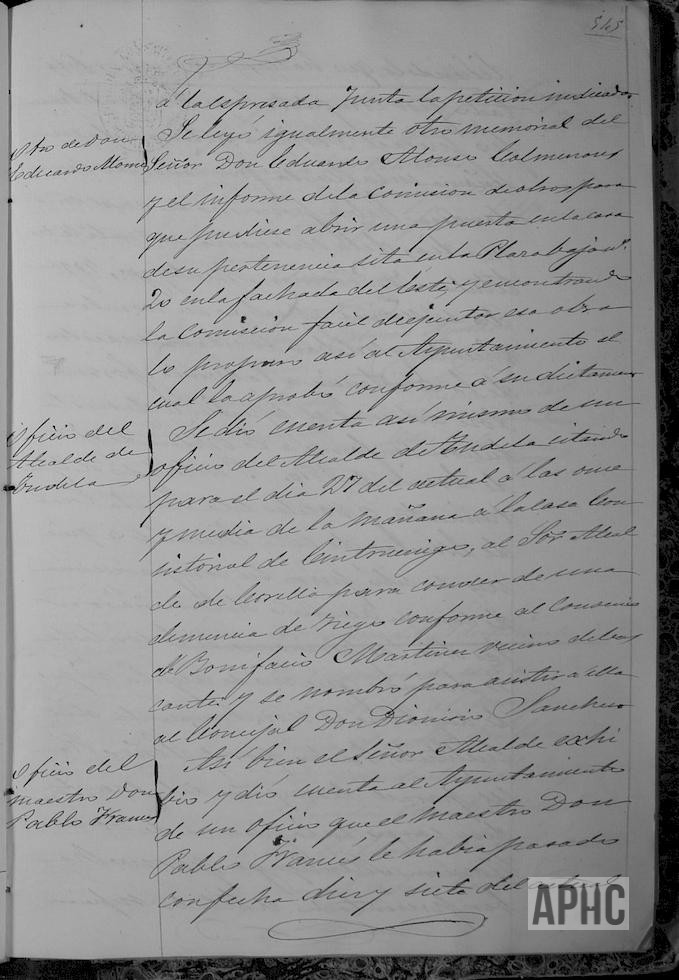 515
á la espresada Junta la petición indicada.
Otro de Don
Eduardo Alonso
Se leyó igualmente otro memorial del
Señor Don Eduardo Alonso Colmenares
y el informe de la comision de obras para
que pudiese abrir una puerta en la casa
de su pertenencia sita en la Plaza baja nº
20 en la fachada del Este, y encontrando
la comision facil de ejecutar esa obra
lo propuso asi al Ayuntamiento el
cual la aprobó conforme á su dictamen
Oficio del
Alcalde de
Tudela
Se dió cuenta asi mismo de un
oficio del Alcalde de Tudela citando
para el dia 27 del actual á las once
y media de la mañana á la casa Con
sistorial de Cintruenigo, al Sor Alcal
de de Corella para conocer de una
denuncia de riego conforme al Convenio
de Bonifacio Martinez vecino de
y se nombró para asistir a ella
al Concejal Don Dionisio Sanchez
Oficio del
maestro Don
Pablo Francés
Asi bien el Señor Alcalde exhi
bió y dió cuenta al Ayuntamiento
de un oficio que el maestro Don
Pablo Francés le habia pasado
con fecha diez y siete del actual
APHC